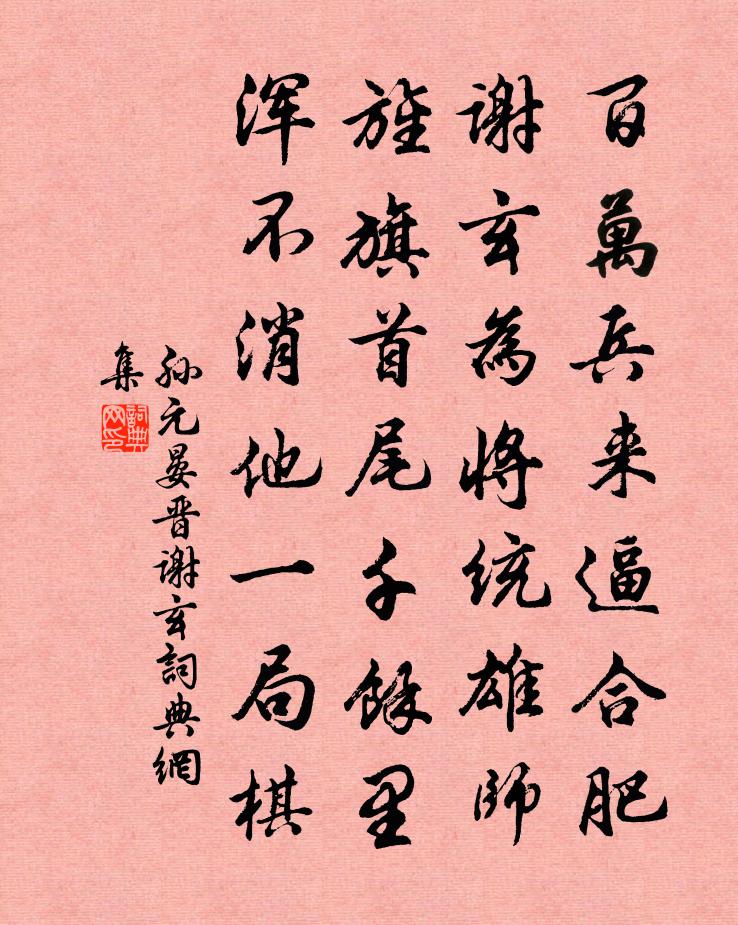 百萬兵来逼合肥
谢玄為將統雄師
旌旗首尾千餘里
浑不消他一局棋
孙元晏晋谢玄詞典網
集
詞典网印